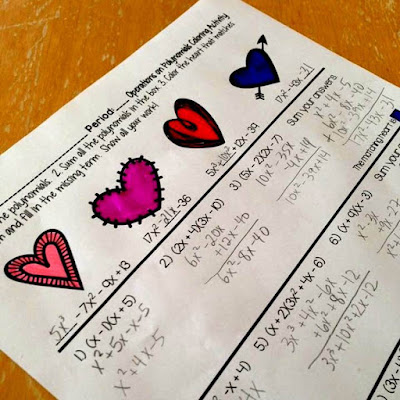 Period: Operations on Polynomials Coloring Activity
the polynomials. 2. Sum all the polynomials in the box 3. Color the heart that matches
and fill in the missing term. Show all your work!
5x³ - 7x² - 9x + 13
17x² - 21x - 36
5x³ + 10x² + 12x - 39
17x² - 43x - 31
1) (x - 1)(x + 5)
x² + 5x - x - 5
x² + 4x - 5
2) (2x + 4)(3x - 10)
6x² - 20x
+ 12x - 40
6x² - 8x - 40
3) (5x - 2)(2x - 7)
10x² - 35x
- 4x + 14
10x² - 39x + 14
Sum your answers
x² + 4x - 5
+ 6x² - 8x - 40
10x² - 39x + 14
17x² - 43x - 31
The matching heart is
- x + 4)
5) (x + 2)(3x² + 4x - 6)
3x³ + 4x² - 6x
+ 6x² + 8x - 12
3x³ + 10x² + 2x - 12
6) (x + 9)(x - 3)
x² - 3x
9x - 27
(3x -
Sum your